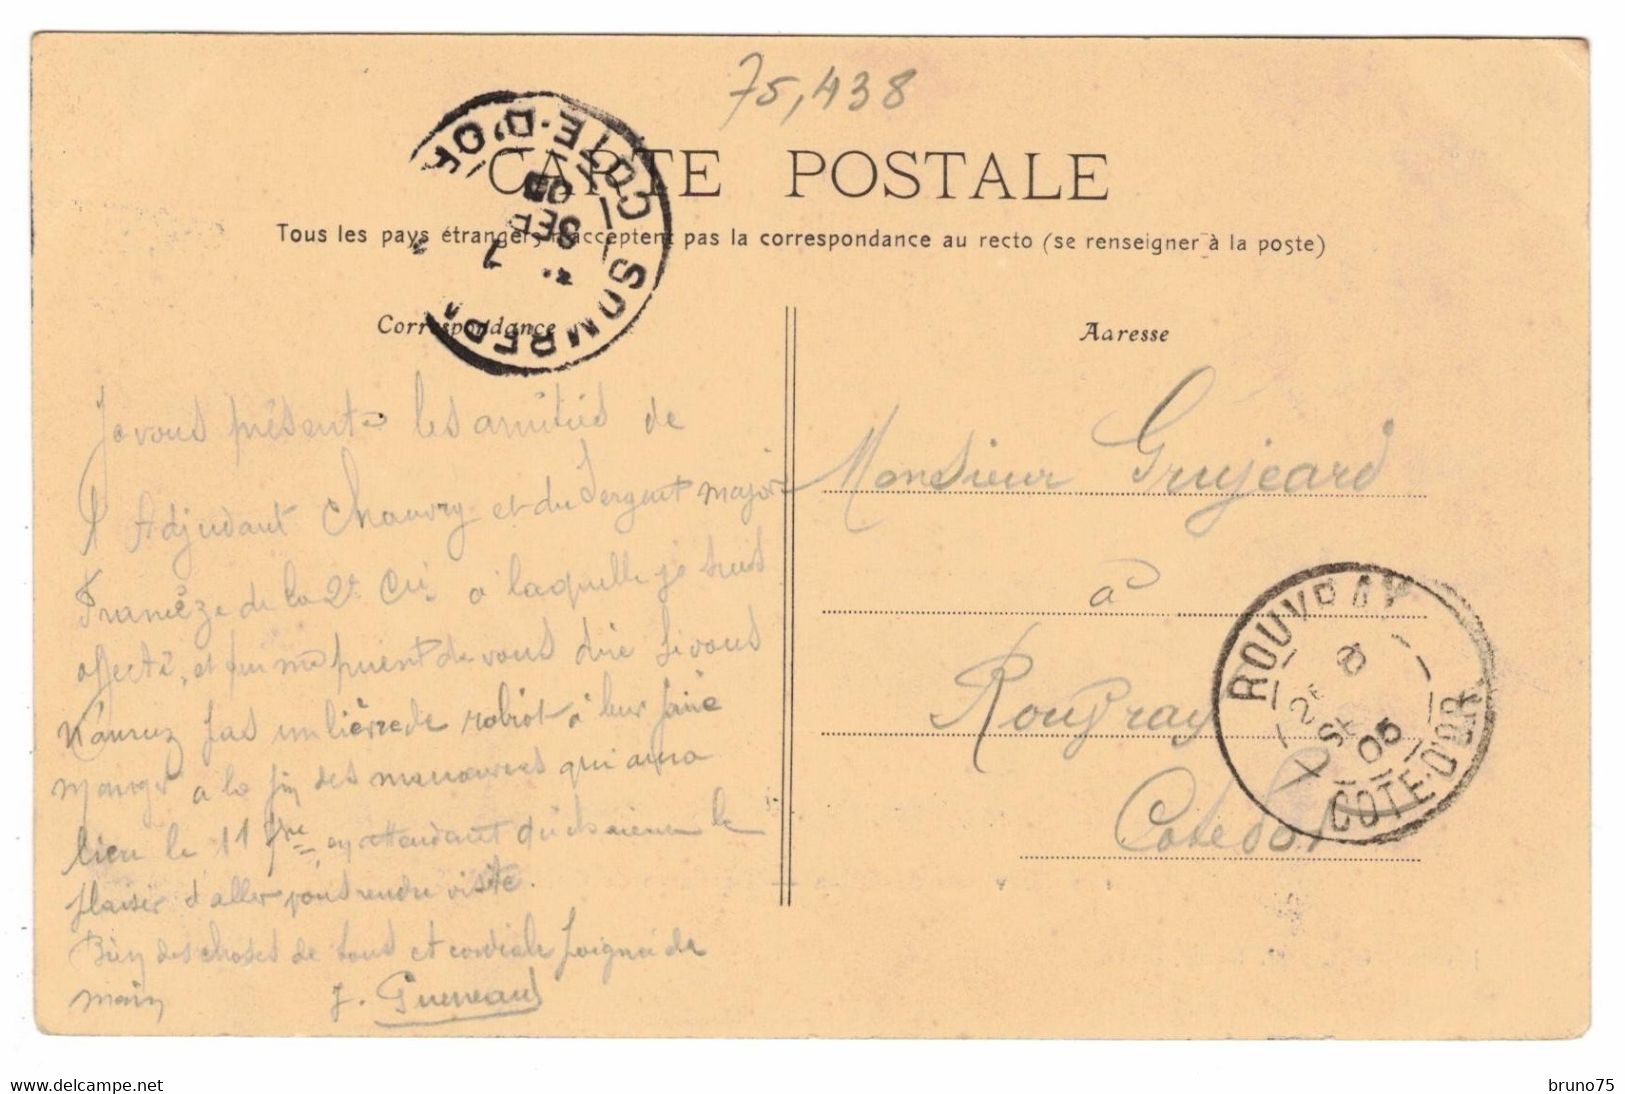 75,438
CARTE POSTALE
Tous les pays étrangers n'acceptent pas la correspondance au recto (se renseigner à la poste)
COTE-D'OR
7
SEP
05
SOMBERN
Correspondance
Adresse
Je vous présente les amitiés de
l'Adjudant Chauvry et du Sergent major
de la 2e Cie à laquelle je suis
affecté, et qui me prient de vous dire si vous
n'auriez pas un lièvre de à leur faire
manger a la fin des manœuvres qui aura
lieu le 11 en attendant le
plaisir d'aller vous rendre visite.
Bien des choses de tous et cordiale poignée de
main J. Gueneau
Monsieur Grujeard
à
Rouvray
Cote dor
ROUVRAY
2E
8
SE
05
COTE-D'OR
www.delcampe.net
bruno75